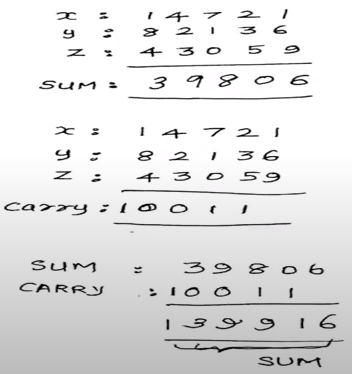 x : 1 4 7 2 1
y : 8 2 1 3 6
z : 4 3 0 5 9
SUM = 3 9 8 0 6
x : 1 4 7 2 1
y : 8 2 1 3 6
z : 4 3 0 5 9
Carry : 1 0 0 1 1
SUM = 3 9 8 0 6
CARRY : 1 0 0 1 1
1 3 9 9 1 6
SUM